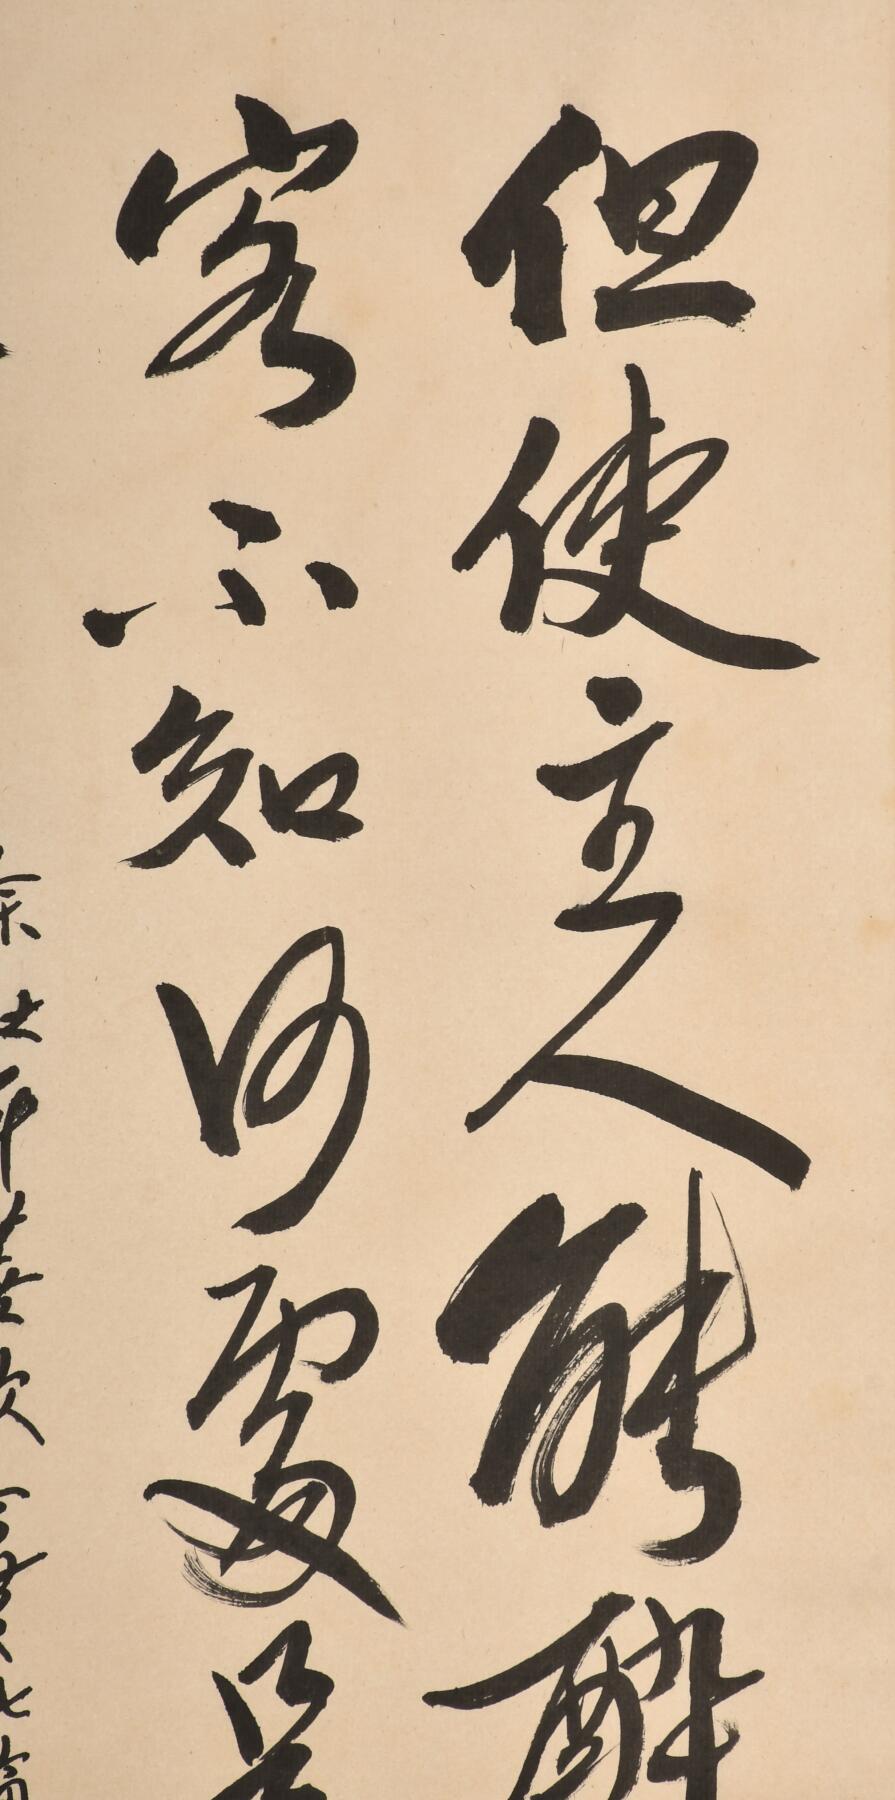 但使主人能醉
客不知何處是